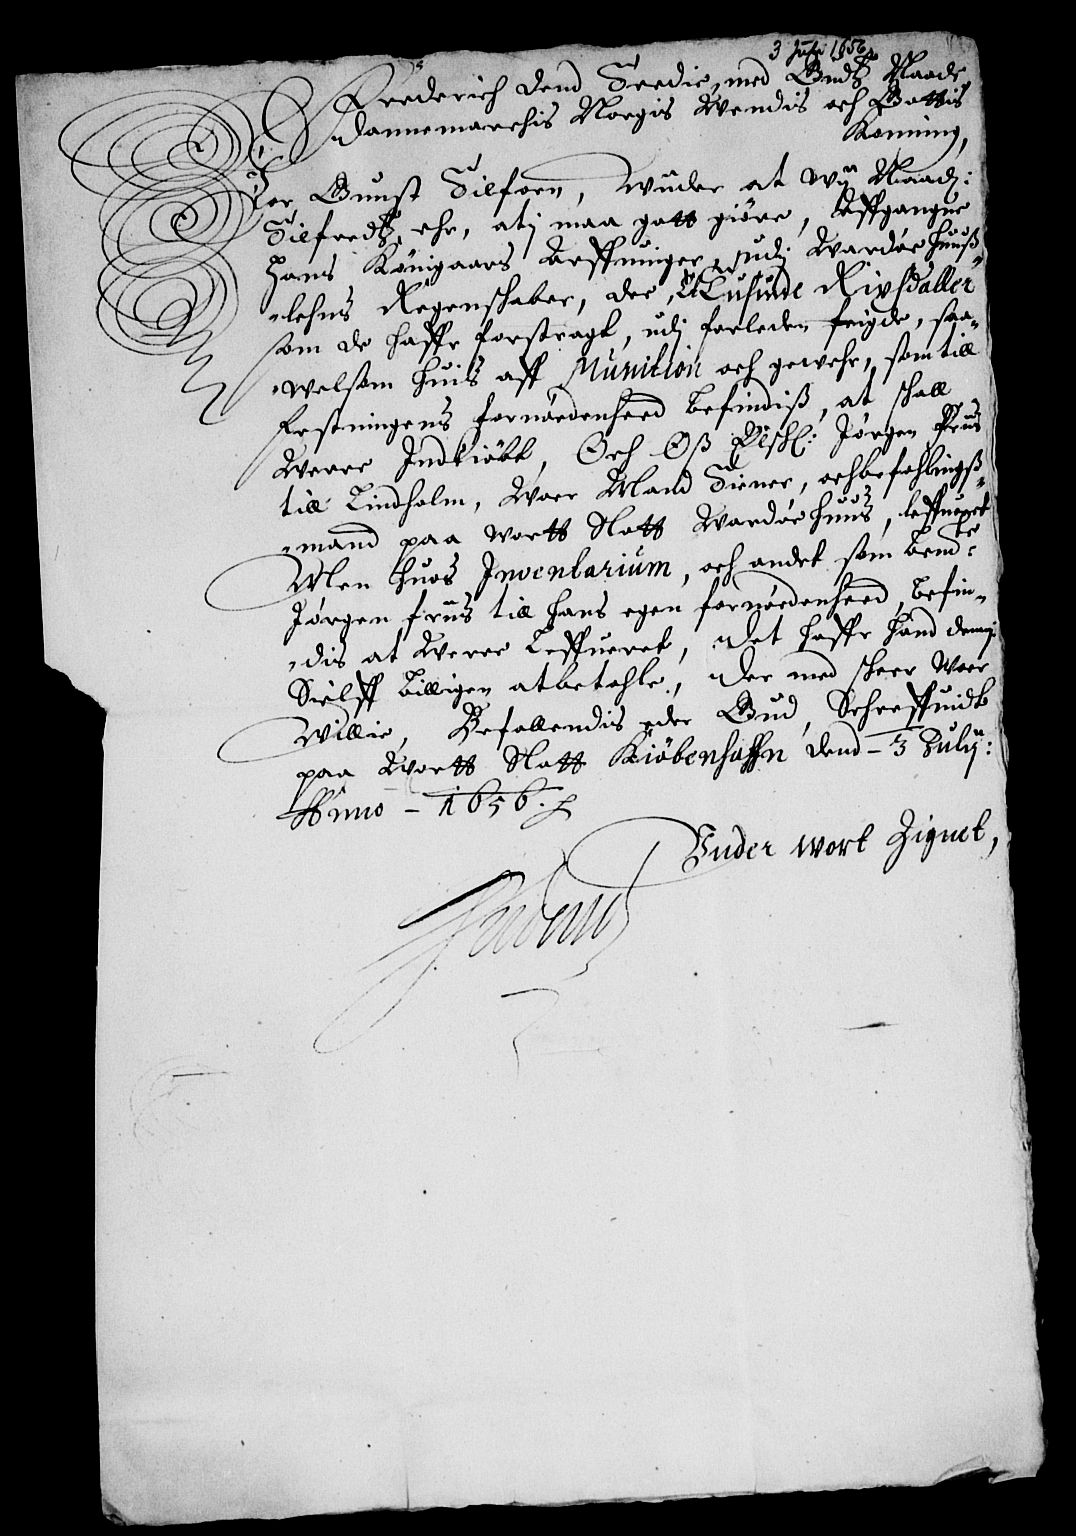 3 Julij 1656
Frederich dend Tredie, med Gudtz Naade,
Dannemarchis Norgis Wendis och Gottis
Konning,
Vor Gunst Tilforn, Wuider at Wij Naadj:
Tilfredtz ehr, at j maa gott giöre, Aeffgangne
Hans Königaars Arffuinger, udj Wardöehuuß-
lehns Regenschaber, de Tusinde Rixsdaller
som de haffr forstragt, udj forleden feigde, saa-
welsom huis aff Munition och gewehr, som till
festningens fornödenheed befindiß, at shall
Were Indkiöbt, Och Oß Elschl: Jörgen friis
till Lindholm, Wor Mand Tiener, och befahlings-
mand paa wortt Slott Wardöehuus, leffueret
Men huos Inventarium, och andet som bemte:
Jörgen friis till hans egen fornödenheed, befin-
dis at Were Leffueret, det haffr hand dennem
Sielff billigen at betahle, Der med skeer Wor
Willie, Befallendis eder Gud, Schreffuidt
paa Wortt Slott Kiöbenhaffn dend 3 Julij:
Anno 1656.
Under wort Zignet,